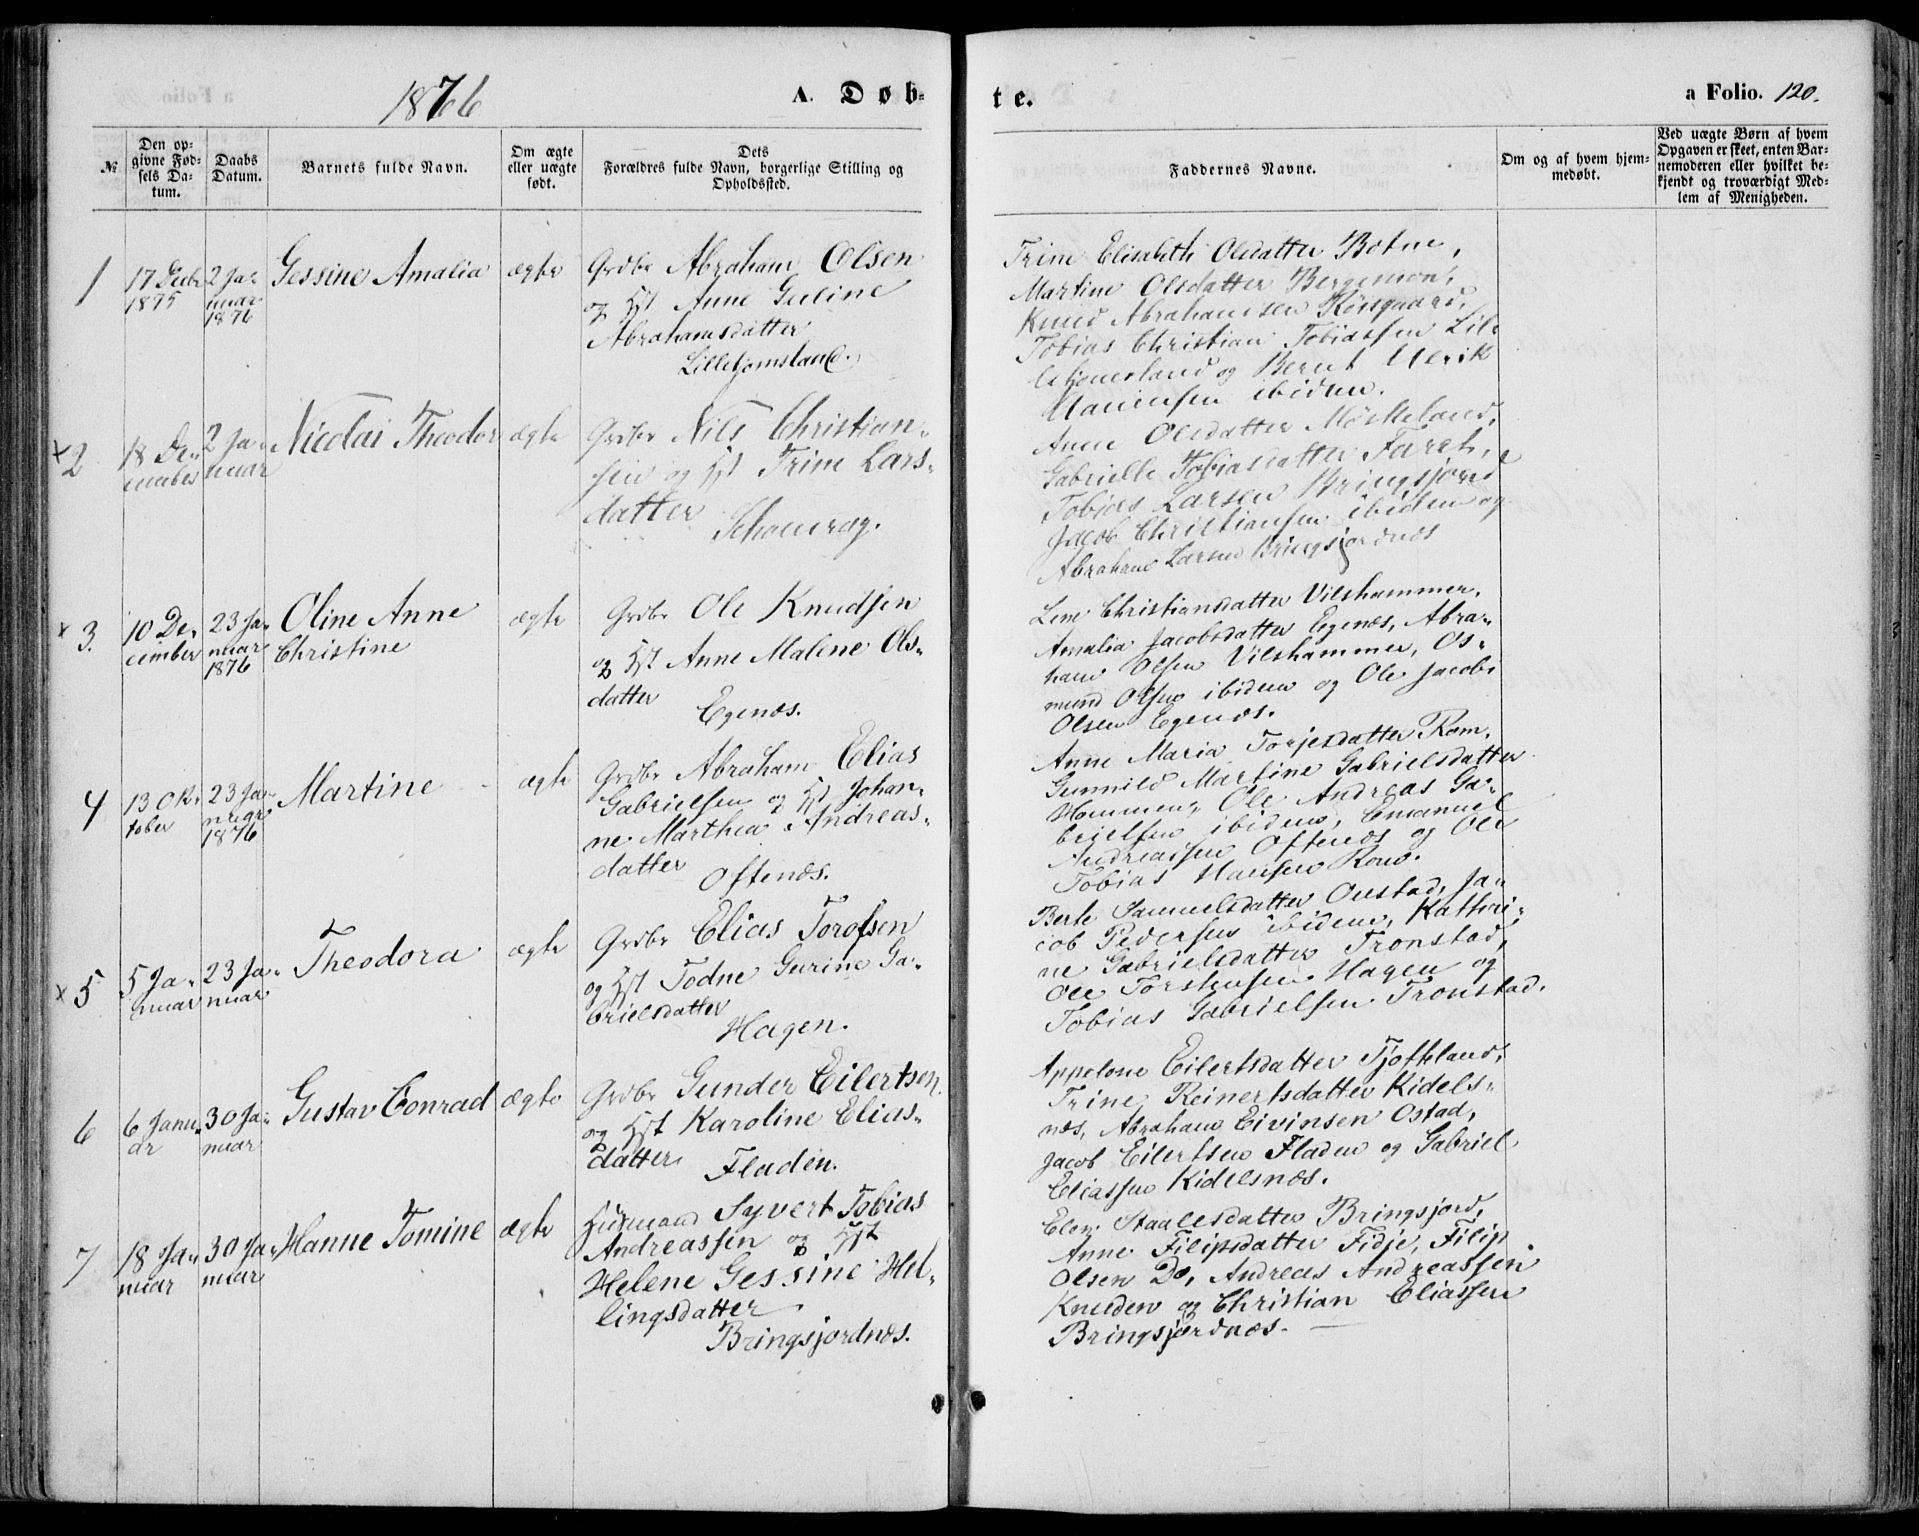 1876
A. Døb-
te.
a Folio. 120.
№
Den op-
givne Fød-
sels Da-
tum.
Daabs
Datum.
Barnets fulde Navn.
Om ægte
eller uægte
født.
Dets
Forældres fulde Navn, borgerlige Stilling og
Opholdssted.
Faddernes Navne.
Om og af hvem hjem-
medøbt.
Ved uægte Børn af hvem
Opgaven er skeet, enten Bar-
nemoderen eller hvilket be-
kjendt og troværdigt Med-
lem af Menigheden.
1
17 Decbr
1875
2 Ja-
nuar
1876
Gessine Amalia
ægte
Grdbr Abraham Olsen
og Hst Anne Guline
Abrahamsdatter
Lilletjomsland.
Trine Elisabeth Olsdatter Botne,
Martine Olsdatter Bergemon,
Knud Abrahamsen Røisgaard,
Tobias Christian Tobiassen Lil-
letjomsland og Bernt Ulrik
Hansen ibidem.
x 2
18 De-
cember
2 Ja-
nuar
Nicolai Theodor
ægte
Grdbr Nils Christian-
sen og Hst Trine Lars-
datter
Schoverag.
Anne Olsdatter Møskeland,
Gabrielle Tobiasdatter Faret,
Tobias Larsen Bringsjord
Jacob Christiansen ibidem og
Abraham Larsen Bringsjordnæs
x 3.
10 De-
cember
23 Ja-
nuar
1876
Oline Anne
Christine
ægte
Grdbr Ole Knudsen
og Hst Anne Malene Ols-
datter
Egenæs.
Lene Christiansdatter Vilshammer,
Amalia Jacobsdatter Egenæs, Abra-
ham Olsen Vilshammer, Os-
mund Olsen ibidem og Ole Jacob
Olsen Egenæs.
4
13 Ok-
tober
23 Ja-
nuar
1876
Martine
ægte
Grdbr Abraham Elias
Gabrielsen og Hst Johan-
ne Marthea Andreas-
datter
Oftenæs.
Anne Maria Torjesdatter Rom,
Gunnild Martine Gabrielsdatter
Hommen, Ole Andreas Ga-
brielsen ibidem, Emanuel
Andreassen Oftenæs og Ole
Tobias Hansen Rom.
x 5
5 Ja-
nuar
23 Ja-
nuar
Theodora
ægte
Grdbr Elias Torofsen
og Hst Todne Gurine Ga-
brielsdatter
Hagen.
Berte Samuelsdatter Oustad, Ja-
cob Pedersen ibidem, Kathri-
ne Gabrielsdatter Tronstad,
Ole Torstensen Hagen og
Tobias Gabrielsen Tronstad.
6
6 Janu-
ar
30 Ja-
nuar
Gustav Conrad
ægte
Grdbr Gunder Eilertsen
og Hst Karoline Elias-
datter
Fladen.
Appolone Eilertsdatter Tjofteland,
Trine Reinertsdatter Kidels-
næs, Abraham Eivinsen Ostad,
Jacob Eilertsen Fladen og Gabriel
Eliassen Kidelsnæs.
7
18 Ja-
nuar
30 Ja-
nuar
Hanne Tomine
ægte
Husmand Syvert Tobias
Andreassen og Hst
Helene Gessine Hel-
lingsdatter
Bringsjordnæs.
Elen Staalesdatter Bringsjord,
Anne Filipsdatter Fidje, Filip
Olsen Do, Andreas Andreassen
Knuden og Christian Eliassen
Bringsjordnæs.